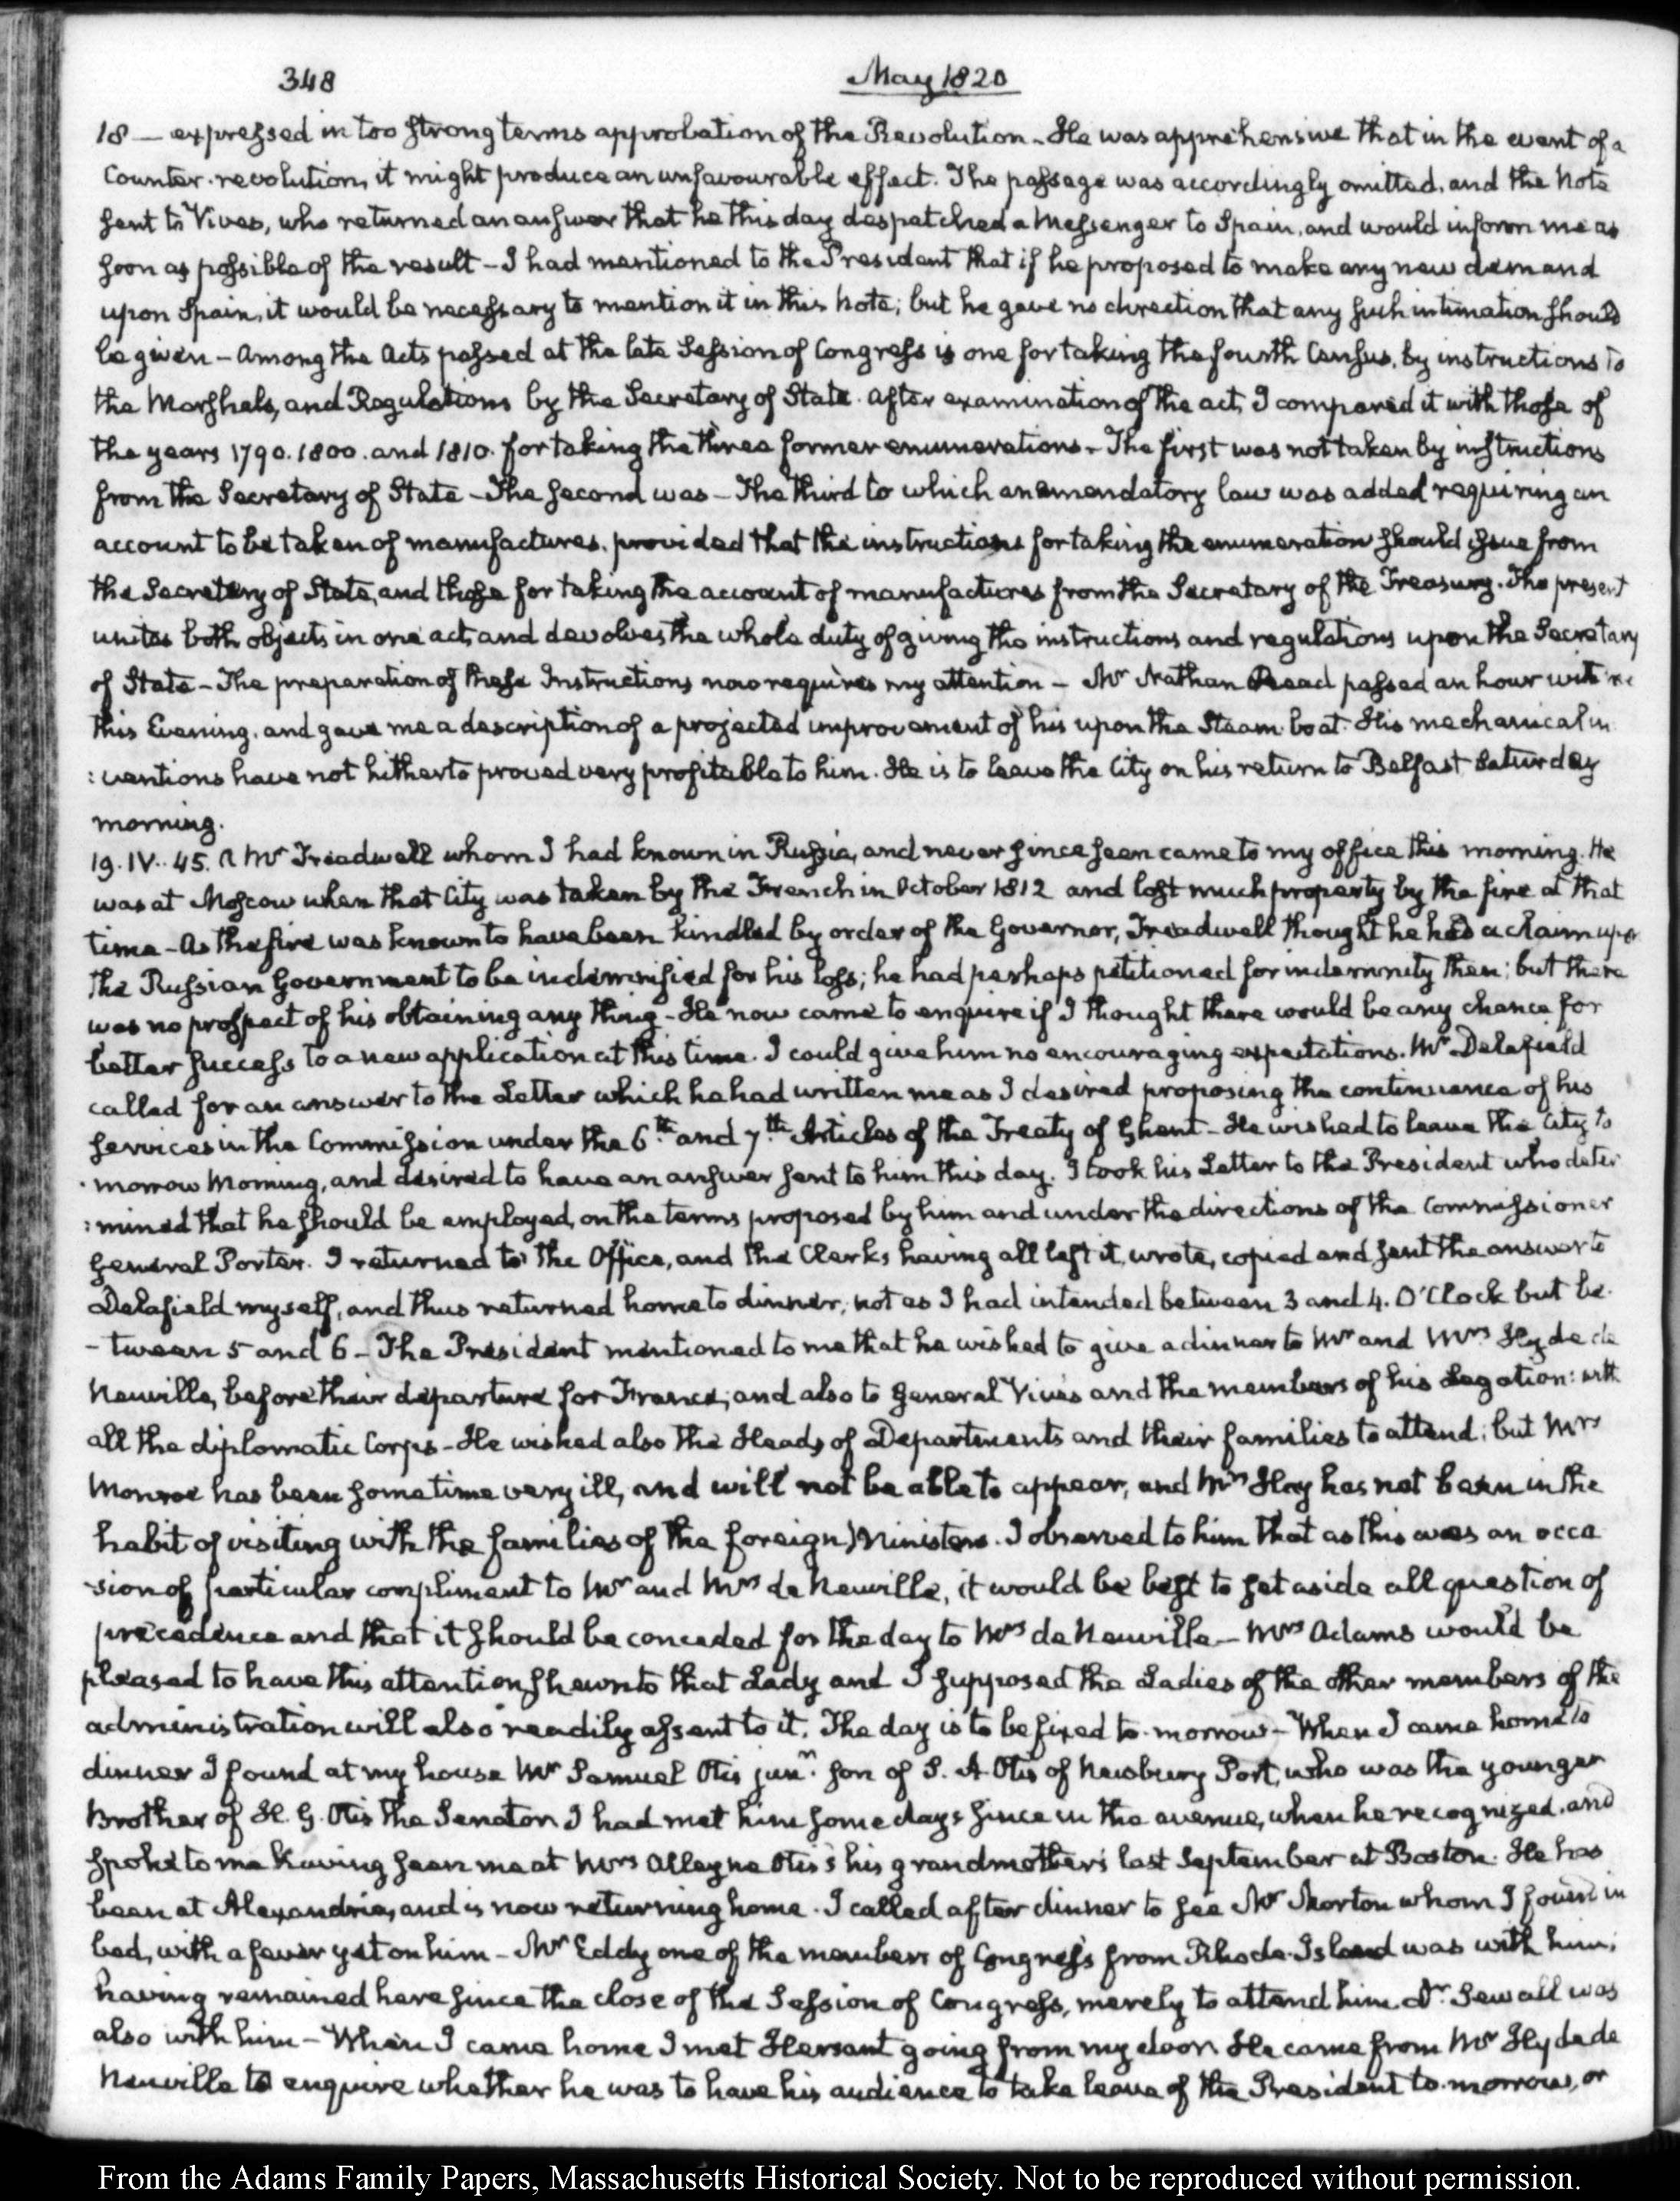 348
May 1820
18 — expressed in too strong terms approbation of the Revolution - He was apprehensive that in the event of a
Counter-revolution, it might produce an unfavourable effect. The passage was accordingly omitted, and the Note
sent to Vives, who returned an answer that he this day despatched a Messenger to Spain, and would inform me as
soon as possible of the result - I had mentioned to the President that if he proposed to make any new demand
upon Spain, it would be necessary to mention it in this Note; but he gave no direction that any such intimation should
be given - Among the Acts passed at the late Session of Congress is one for taking the fourth Census, by instructions to
the Marshals, and Regulations by the Secretary of State. After examination of the act, I compared it with those of
the years 1790. 1800. and 1810. for taking the three former enumerations - The first was not taken by instructions
from the Secretary of State - The second was - The third to which an amendatory law was added requiring an
account to be taken of manufactures, provided that the instructions for taking the enumeration should issue from
the Secretary of State, and those for taking the account of manufactures from the Secretary of the Treasury. The present
unites both objects in one act, and devolves the whole duty of giving the instructions and regulations upon the Secretary
of State - The preparation of these Instructions now requires my attention - Mr Nathan Read passed an hour with me
this Evening, and gave me a description of a projected improvement of his upon the Steam-boat. His mechanical in
:ventions have not hitherto proved very profitable to him. He is to leave the City on his return to Belfast Saturday
morning.
19. IV. 45. A Mr Treadwell whom I had known in Russia, and never since seen came to my office this morning. He
was at Moscow when that City was taken by the French in October 1812 and lost much property by the fire at that
time - As the fire was known to have been kindled by order of the Governor, Treadwell thought he had a claim upon
the Russian Government to be indemnified for his loss; he had perhaps petitioned for indemnity then; but there
was no prospect of his obtaining any thing - He now came to enquire if I thought there would be any chance for
better success to a new application at this time. I could give him no encouraging expectations. Mr Delafield
called for an answer to the Letter which he had written me as I desired proposing the continuance of his
services in the Commission under the 6th and 7th Articles of the Treaty of Ghent - He wished to leave the City to
-morrow Morning, and desired to have an answer sent to him this day. I took his Letter to the President who deter
:mined that he should be employed, on the terms proposed by him and under the directions of the Commissioner
General Porter. I returned to the Office, and the Clerks having all left it, wrote, copied and sent the answer to
Delafield myself, and thus returned home to dinner, not as I had intended between 3 and 4. O'Clock but be-
-tween 5 and 6 - The President mentioned to me that he wished to give a dinner to Mr and Mrs Hyde de
Neuville, before their departure for France; and also to General Vives and the members of his Legation: with
all the diplomatic Corps - He wished also the Heads of Departments and their families to attend; but Mrs
Monroe has been sometime very ill, and will not be able to appear, and Mrs Hay has not been in the
habit of visiting with the families of the foreign Ministers. I observed to him that as this was an occa
-sion of particular compliment to Mr and Mrs de Neuville, it would be best to set aside all question of
precedence and that it should be conceded for the day to Mrs de Neuville - Mrs Adams would be
pleased to have this attention shewn to that Lady and I supposed the Ladies of the other members of the
administration will also readily assent to it. The day is to be fixed to-morrow - When I came home to
dinner I found at my house Mr Samuel Otis junr. son of S. A Otis of Newbury Port, who was the younger
Brother of H. G. Otis the Senator I had met him some days since in the avenue, when he recognized, and
spoke to me having seen me at Mrs Alleyne Otis's his grandmother's last September at Boston. He has
been at Alexandria, and is now returning home. I called after dinner to see Mr Morton whom I found in
bed, with a fever yet on him - Mr Eddy one of the members of Congress from Rhode-Island was with him;
having remained here since the close of the Session of Congress, merely to attend him. Dr Sewall was
also with him - When I came home I met Hersant going from my door. He came from Mr Hyde de
Neuville to enquire whether he was to have his audience to take leave of the President to-morrow, or
From the Adams Family Papers, Massachusetts Historical Society. Not to be reproduced without permission.